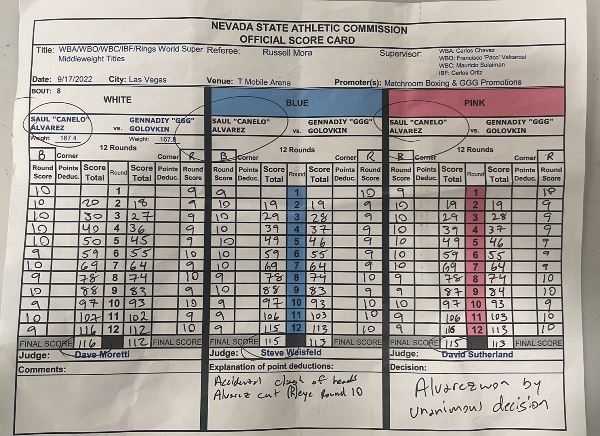 NEVADA STATE ATHLETIC COMMISSION
OFFICIAL SCORE CARD
Title: WBA/WBO/WBC/IBF/Rings World Super Middleweight Titles Referee: Russell Mora Supervisor: WBA: Carlos Chavez
WBO: Francisco 'Paco' Valcarcel
WBC: Mauricio Sulaiman
IBF: Carlos Ortiz
Date: 9/17/2022 City: Las Vegas Venue: T Mobile Arena Promoter(s): Matchroom Boxing & GGG Promotions
BOUT: 8
WHITE BLUE PINK
SAUL "CANELO" ALVAREZ vs. GENNADIY "GGG" GOLOVKIN SAUL "CANELO" ALVAREZ vs. GENNADIY "GGG" GOLOVKIN SAUL "CANELO" ALVAREZ vs. GENNADIY "GGG" GOLOVKIN
Weight: 167.4 Weight: 167.8
12 Rounds 12 Rounds 12 Rounds
B Corner Corner R B Corner Corner R B Corner Corner R
Round Score Points Deduc. Score Total Round Score Total Points Deduc. Round Score Round Score Points Deduc. Score Total Round Score Total Points Deduc. Round Score Round Score Points Deduc. Score Total Round Score Total Points Deduc. Round Score
10 1 9 9 1 10 9 1 10
10 20 2 18 9 10 19 2 19 9 10 19 2 19 9
10 30 3 27 9 10 29 3 28 9 10 29 3 28 9
10 40 4 36 9 10 39 4 37 9 10 39 4 37 9
10 50 5 45 9 10 49 5 46 9 10 49 5 46 9
9 59 6 55 10 10 59 6 55 9 10 59 6 55 9
10 69 7 64 9 10 69 7 64 9 10 69 7 64 9
9 78 8 74 10 9 78 8 74 10 9 78 8 74 10
10 88 9 83 9 10 88 9 83 9 9 87 9 84 10
9 97 10 93 10 9 97 10 93 10 10 97 10 93 9
10 107 11 102 9 9 106 11 103 10 9 106 11 103 10
9 116 12 112 10 9 115 12 113 10 9 115 12 113 10
FINAL SCORE 116 112 FINAL SCORE 115 113 FINAL SCORE 115 113 FINAL SCORE
Judge: Dave Moretti Judge: Steve Weisfeld Judge: David Sutherland
Comments: Explanation of point deductions: Decision:
Accidental clash of heads
Alvarez cut (R) eye Round 10
Alvarez won by
unanimous decision